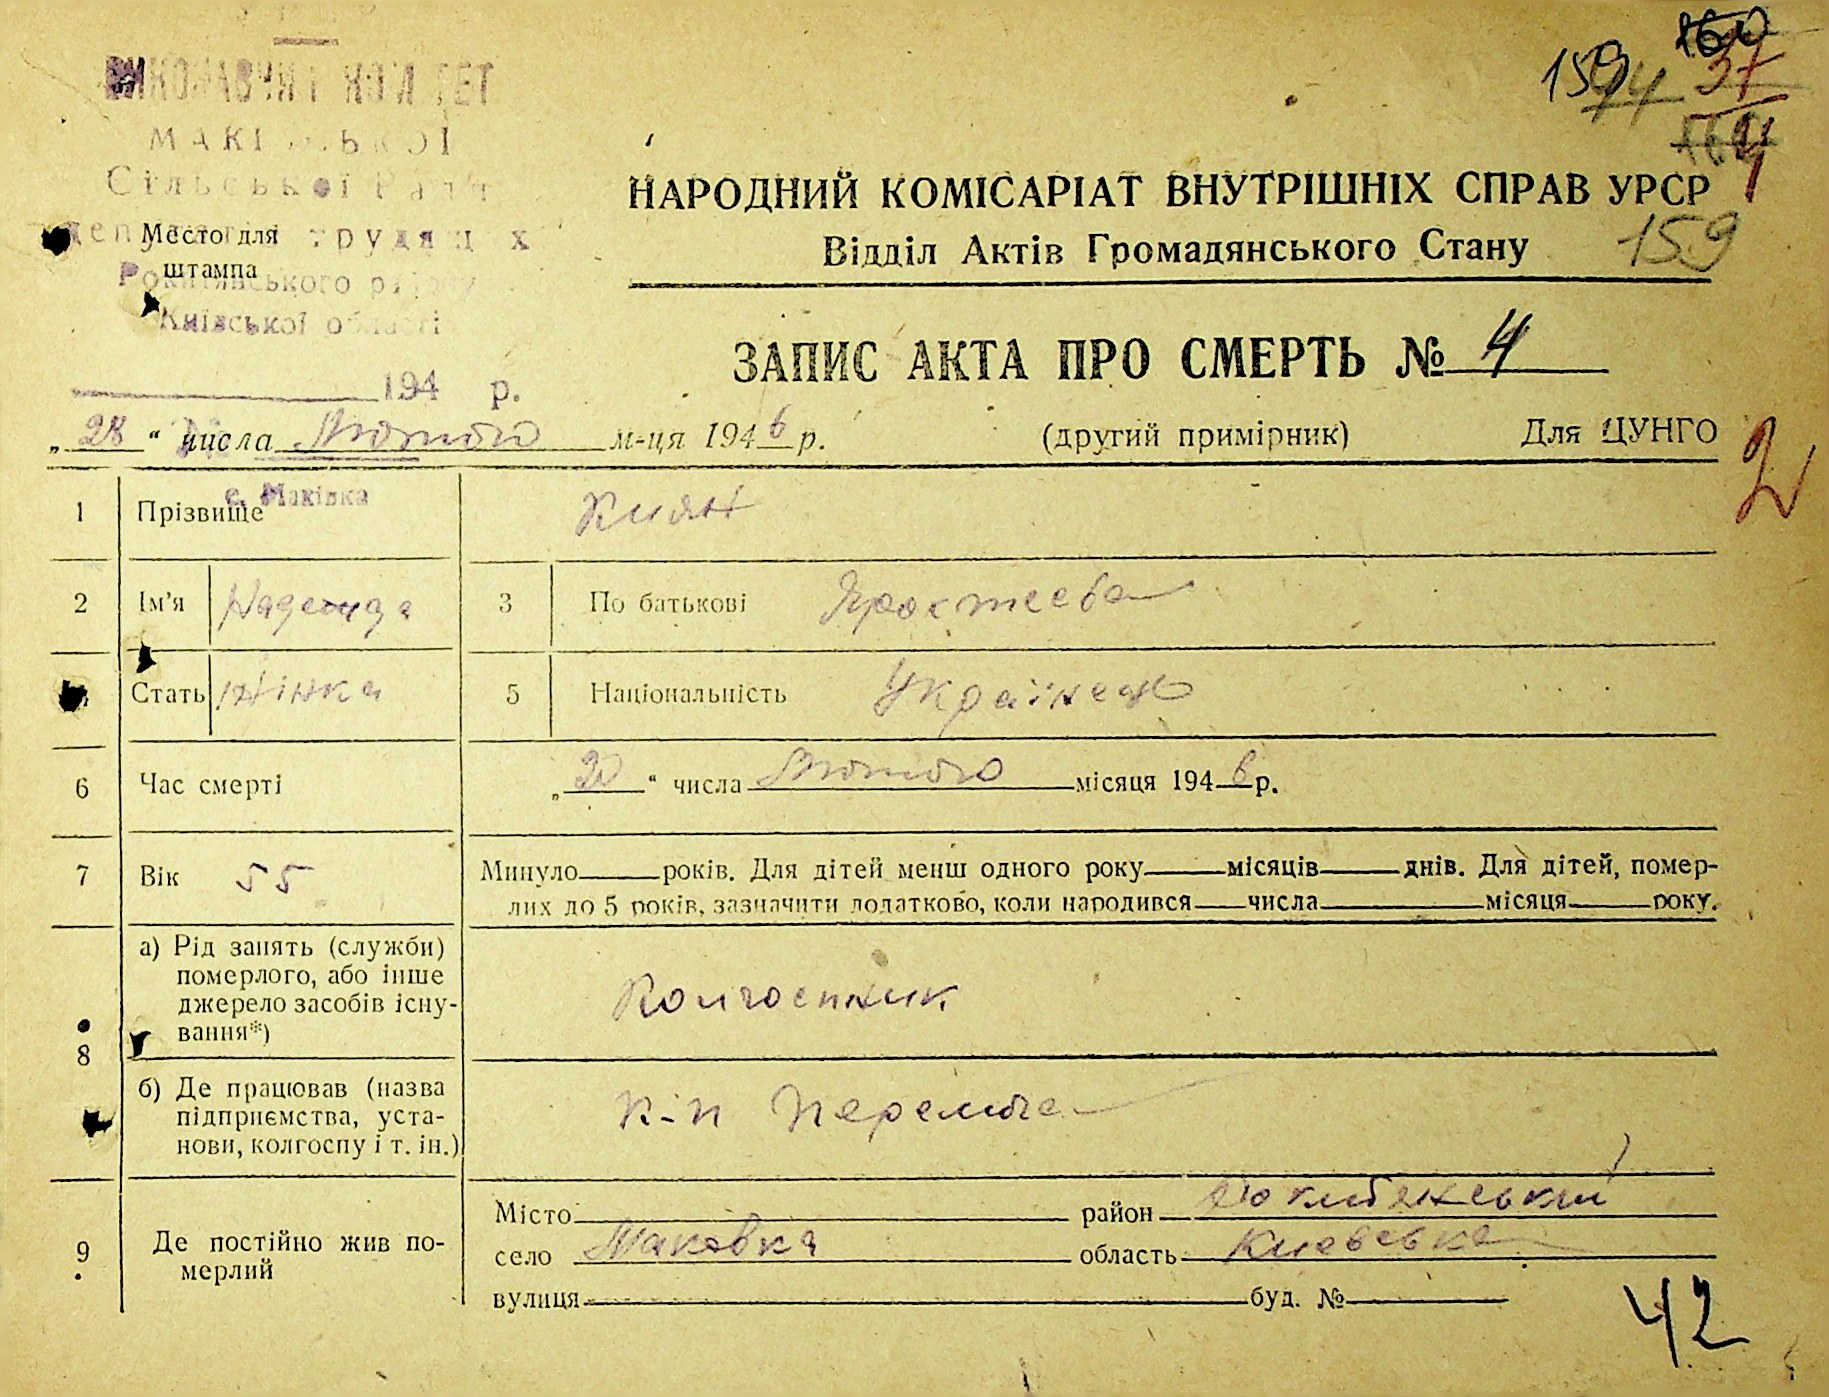 ВИКОНАВЧИЙ КОМІТЕТ
МАКІВСЬКОЇ
Сільської Ради
депутатів трудящих
Рокитянського району
Київської області
Место для
штампа
194 р.
с. Маківка
159
74
37
4
159
НАРОДНИЙ КОМІСАРІАТ ВНУТРІШНІХ СПРАВ УРСР
Відділ Актів Громадянського Стану
ЗАПИС АКТА ПРО СМЕРТЬ № 4
„28“ числа Лютого м-ця 1946 р. (другий примірник) Для ЦУНГО
2
1 Прізвище Киян
2 Ім'я 3 По батькові
Стать Жінка 5 Національність
6 Час смерті „20“ числа Лютого місяця 1946 р.
7 Вік 55 Минуло років. Для дітей менш одного року місяців днів. Для дітей, помер-
лих до 5 років, зазначити додатково, коли народився числа місяця року.
8 а) Рід занять (служби)
померлого, або інше
джерело засобів існу-
вання*)
Колгоспник
б) Де працював (назва
підприємства, уста-
нови, колгоспу і т. ін.)
К-п Перемога
9 Де постійно жив по-
мерлий
Місто район
село Маковка область Киевська
вулиця буд. №
42